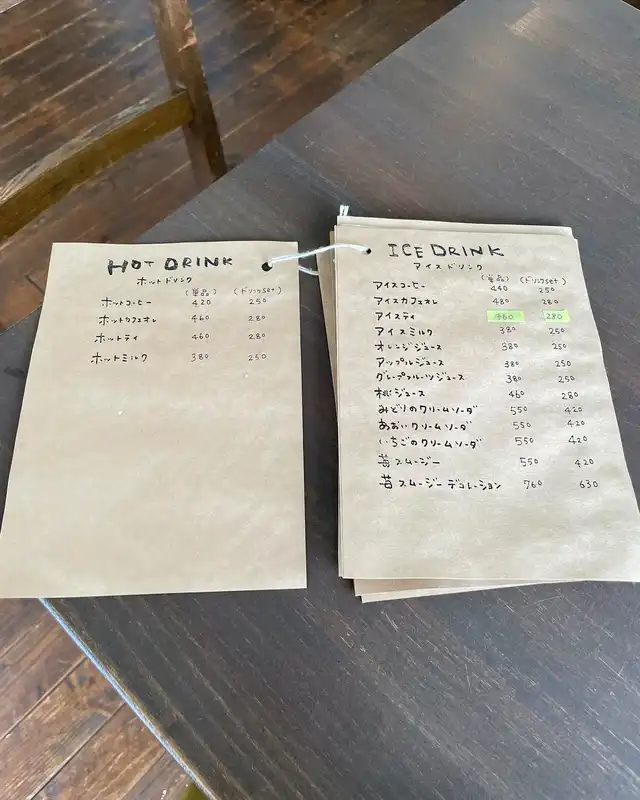 HOT DRINK
ホットドリンク
(単品) (ドリンクset)
ホットコーヒー 420 250
ホットカフェオレ 460 280
ホットティ 460 280
ホットミルク 380 250
ICE DRINK
アイスドリンク
(単品) (ドリンクset)
アイスコーヒー 440 250
アイスカフェオレ 480 280
アイスティ 460 280
アイスミルク 380 250
オレンジジュース 380 250
アップルジュース 380 250
グレープフルーツジュース 380 250
桃ジュース 460 280
みどりのクリームソーダ 550 420
あおいクリームソーダ 550 420
いちごのクリームソーダ 550 420
苺スムージー 550 420
苺スムージーデコレーション 760 630